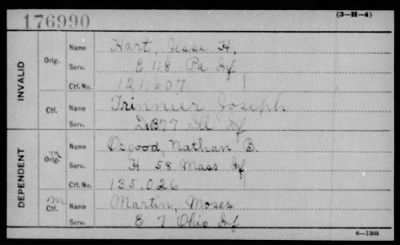 176990
(3-H-4)
INVALID
Orig. Name Hart, Jesse H.
Serv. E 118 Pa Inf
Ctf. No. 121,607
Ctf. Name Trinnier Joseph
Serv. D, B 77 Ill Inf
DEPENDENT
Orig. Name Osgood, Nathan B.
Serv. H 58 Mass Inf
Ctf. No. 135.026
m Ctf. Name Martin, Moses
Serv. E 7 Ohio Inf
6—1308